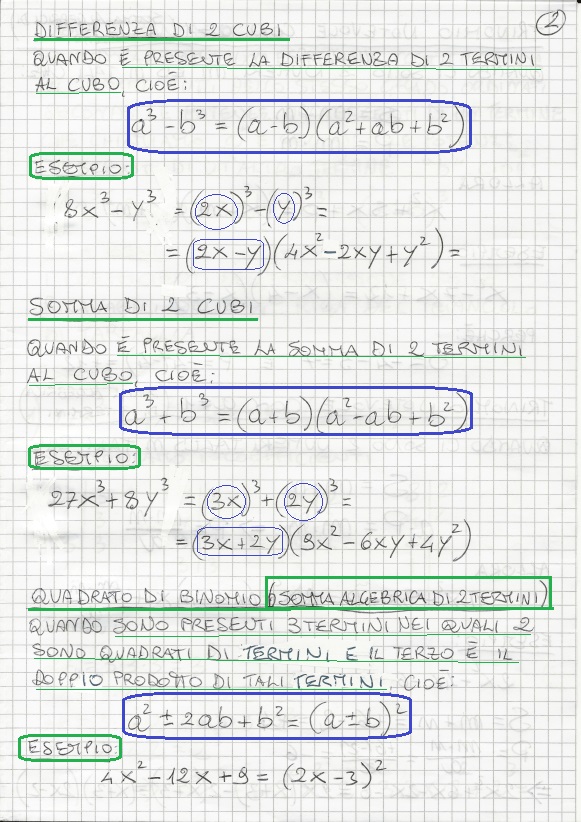 2
DIFFERENZA DI 2 CUBI
QUANDO È PRESENTE LA DIFFERENZA DI 2 TERMINI
AL CUBO, CIOÈ:
a³ - b³ = (a-b)(a²+ab+b²)
ESEMPIO:
8x³ - y³ = (2x)³ - (y)³ =
= (2x - y)(4x² - 2xy + y²) =
SOMMA DI 2 CUBI
QUANDO È PRESENTE LA SOMMA DI 2 TERMINI
AL CUBO, CIOÈ:
a³ + b³ = (a+b)(a²-ab+b²)
ESEMPIO:
27x³ + 8y³ = (3x)³ + (2y)³ =
= (3x+2y)(9x² - 6xy + 4y²)
QUADRATO DI BINOMIO (O SOMMA ALGEBRICA DI 2 TERMINI)
QUANDO SONO PRESENTI 3 TERMINI NEI QUALI 2
SONO QUADRATI DI TERMINI E IL TERZO È IL
DOPPIO PRODOTTO DI TALI TERMINI, CIOÈ:
a² ± 2ab + b² = (a ± b)²
ESEMPIO:
4x² - 12x + 9 = (2x - 3)²